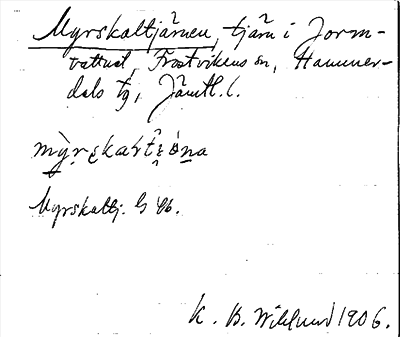 Myrskaltjärnen, tjärn i Jorm-
vattnet, Frostvikens sn, Hammer-
dals tg, Jämtl. l.
Myrskaltj. G 46.
K. B. Wiklund 1906.